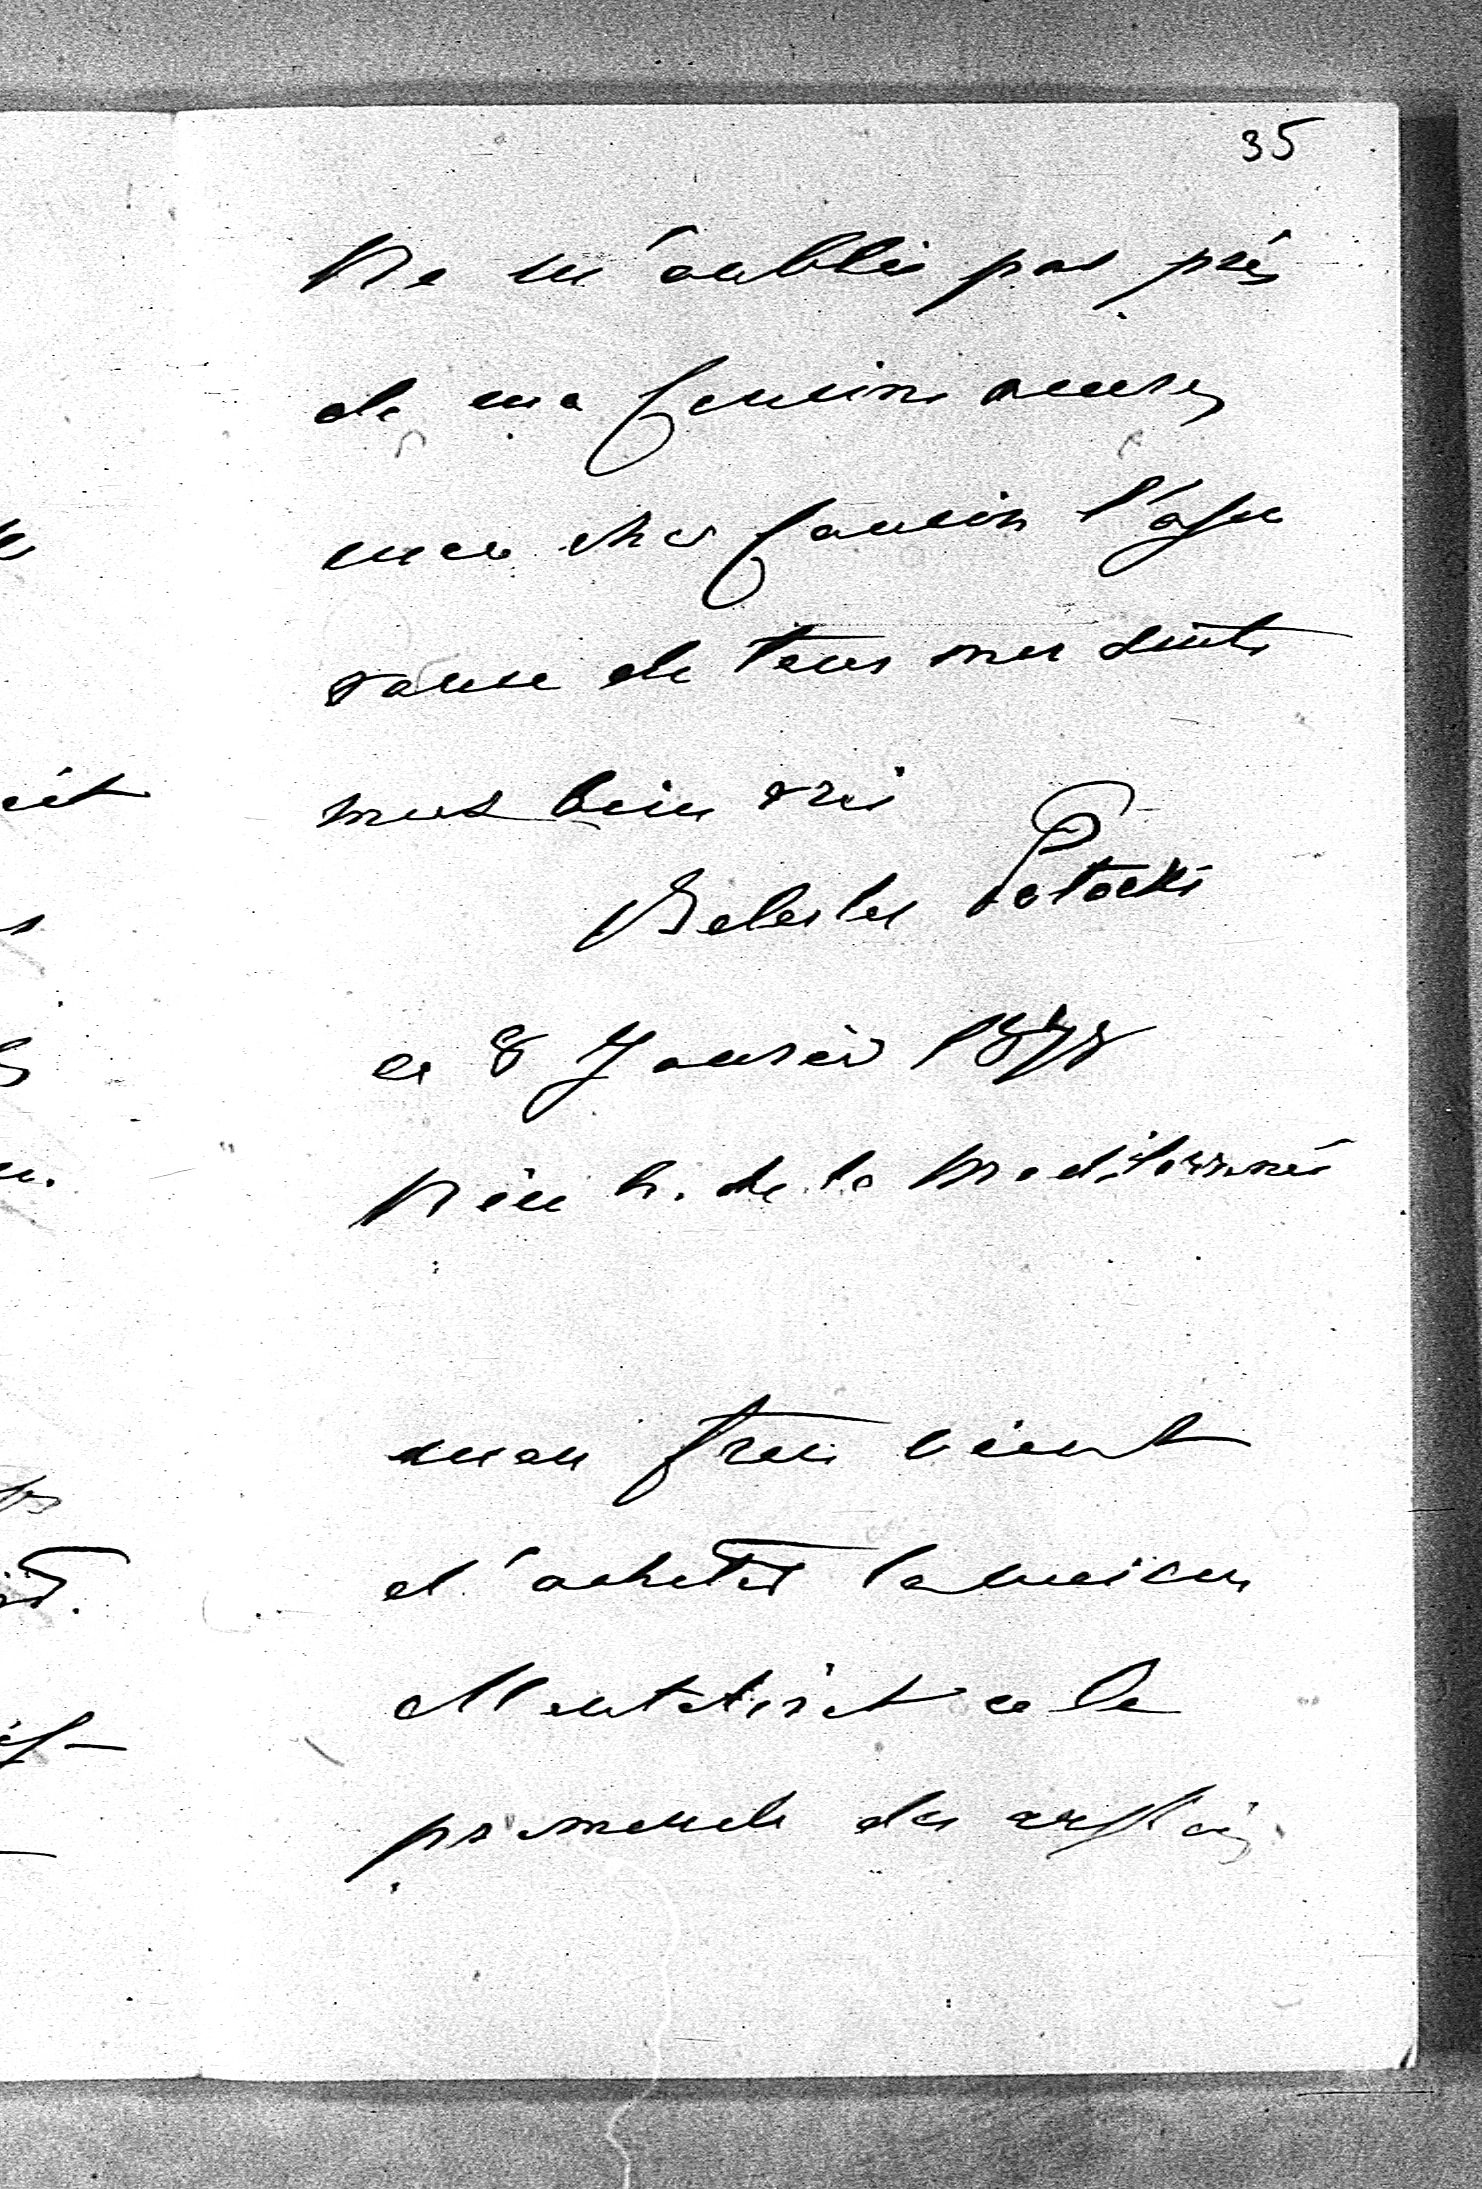 35
Ne m'oublie pas près
de ma Cousine
mon cher Cousin l'assu
rance de tous mes senti
mens bien vrai
Boleslas Potocki
le 8 Janvier 1878
Nice h. de la Mediterranée
mon frere vient
d'acheter la maison
a la
promenade des anglais.